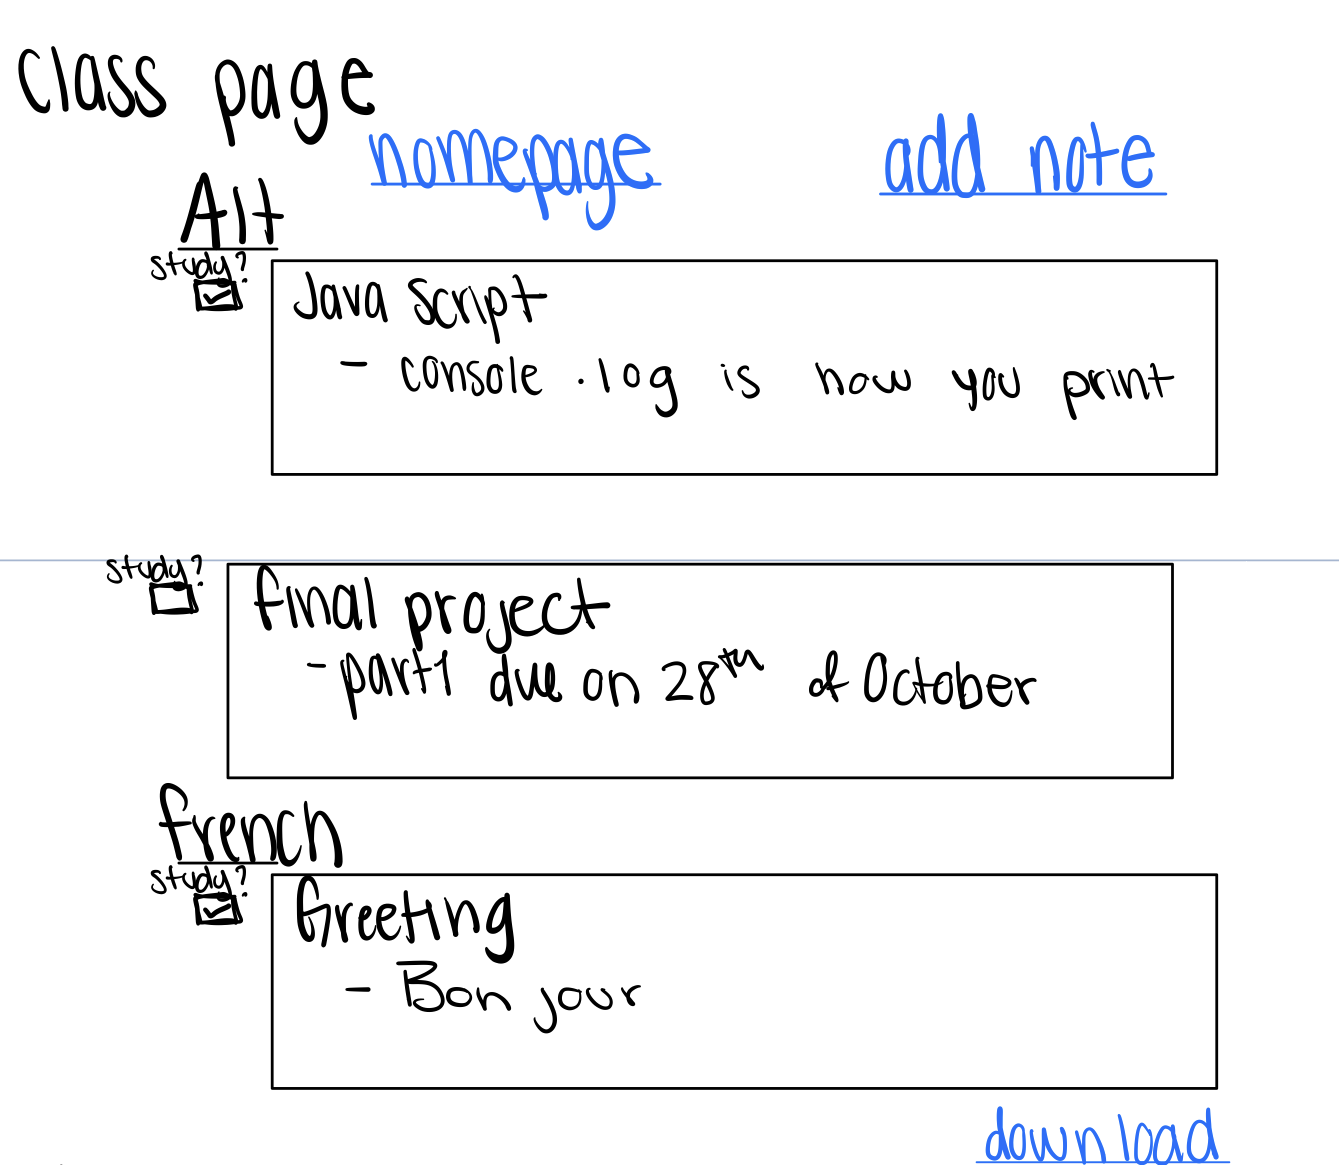 class page
homepage add note
AIt
study?
Java Script
- console.log is how you print
study?
final project
- part1 due on 28th of October
french
study?
Greeting
- Bon jour
download